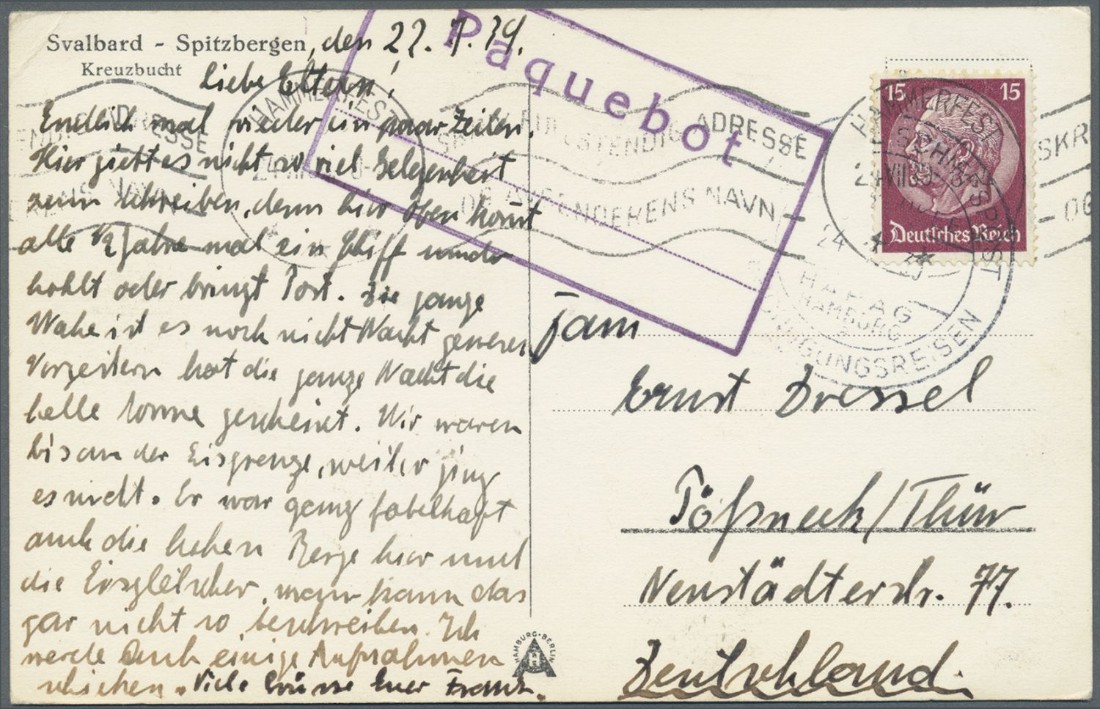 Svalbard - Spitzbergen, den 22. 7. 39.
Kreuzbucht
Liebe Eltern!
Endlich mal wieder ein paar Zeilen.
Hier giebt es nicht so viel Gelegenheit
zum Schreiben, denn hier oben kommt
alle 1/2 Jahre mal ein Schiff und
hohlt oder bringt Post. Die ganze
Woche ist es noch nicht Nacht gewesen
Vorgestern hat die ganze Nacht die
helle Sonne gescheint. Wir waren
bis an der Eisgrenze, weiter ging
es nicht. Er war ganz fabelhaft
auch die hohen Berge hier und
die Eisgletscher, man kann das
gar nicht so beschreiben. Ich
werde Euch einige Aufnahmen
schicken. Viele Grüsse Euer Frank.
Paquebot
HAMMERFEST
ADRESSE
AVSENDERENS NAVN
15 15
Deutsches Reich
HAMMERFEST
24 VII 39
DEUTSCHE SCHIFFSPOST
HAPAG
HAMBURG
VERGNÜGUNGSREISEN
Fam
Ernst Dressel
Pößneck/Thür
Neustädterstr. 77.
Deutschland.
HAMBURG-BERLIN